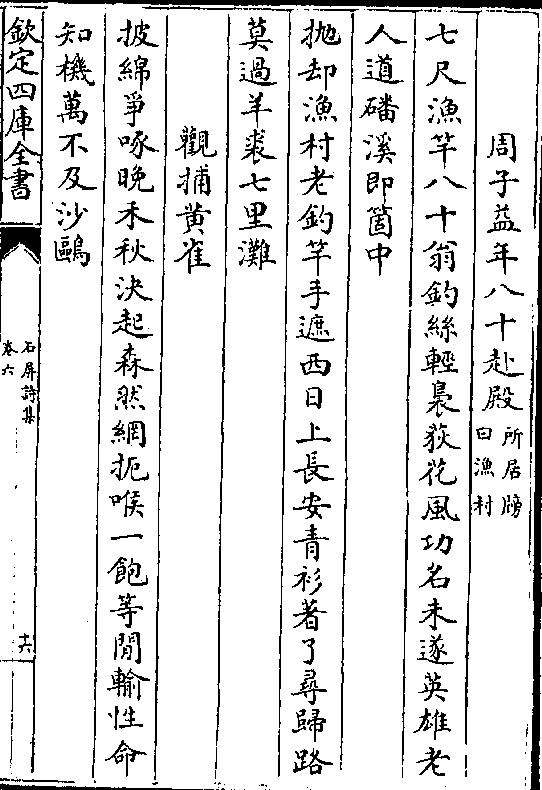 周子益年八十赴殿所居牓曰漁村
七尺漁竿八十翁釣絲輕裊荻花風功名未遂英雄老
人道磻溪即箇中
抛却漁村老釣竿手遮西日上長安青衫著了尋歸路
莫過羊裘七里灘
觀捕黄雀
披綿爭啄晚禾秋決起森然網扼喉一飽等閒輸性命
知機萬不及沙鷗
欽定四庫全書
石屏詩集
卷六
十六